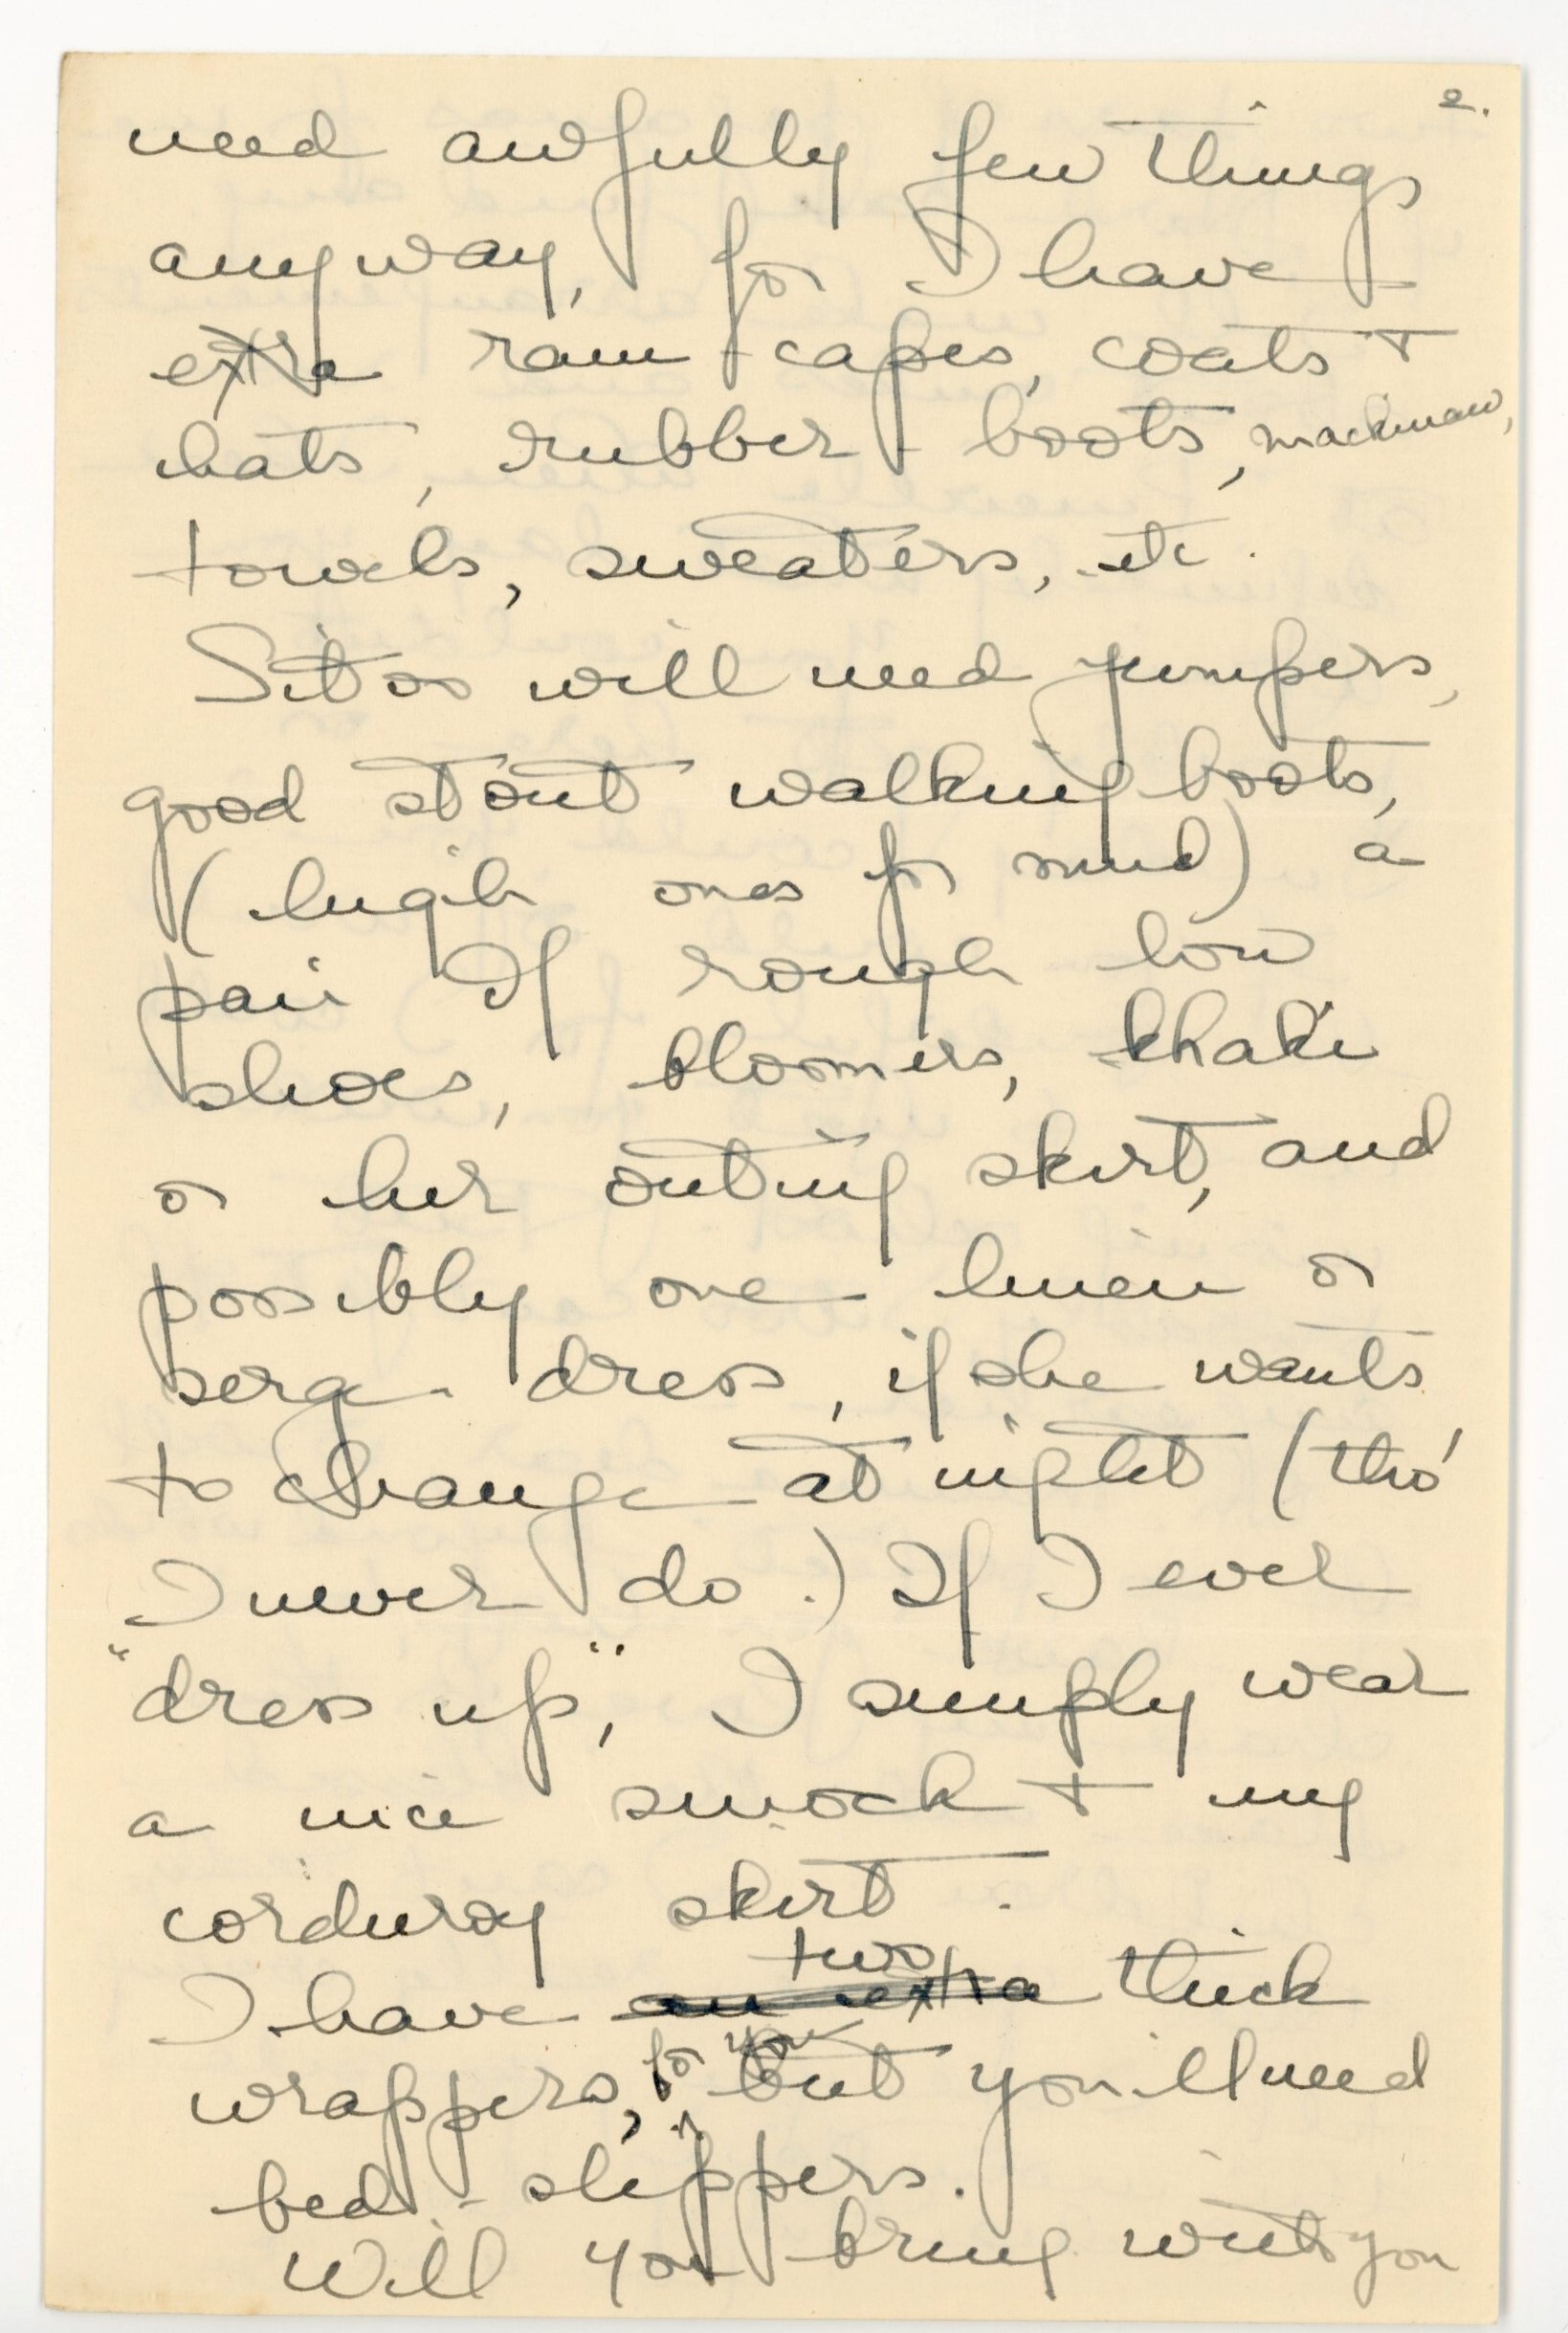 2.
need awfully few things
anyway, for I have
extra rain-capes, coats +
hats, rubber-boots, mackinaw,
towels, sweaters, etc.
Sitos will need jumpers,
good stout walking boots,
(high ones for mud) a
pair of rough low
shoes, bloomers, khaki
or her outing skirt, and
possibly one linen or
serge dress, if she wants
to change at night (tho'
I never do.) If I ever
"dress up," I simply wear
a nice smock + my
corduroy skirt.
I have an extra two thick
wrappers, for you but you'll need
bed-slippers.
Will you bring with you